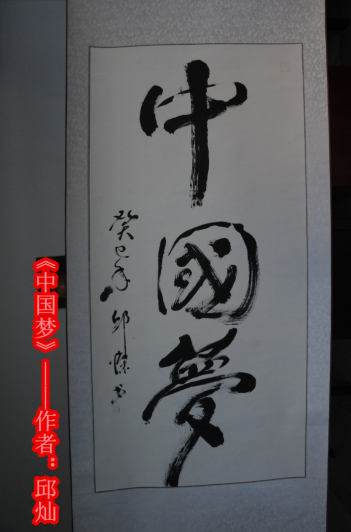 中國夢
癸巳年邱燦书
《中国梦》——作者：邱灿